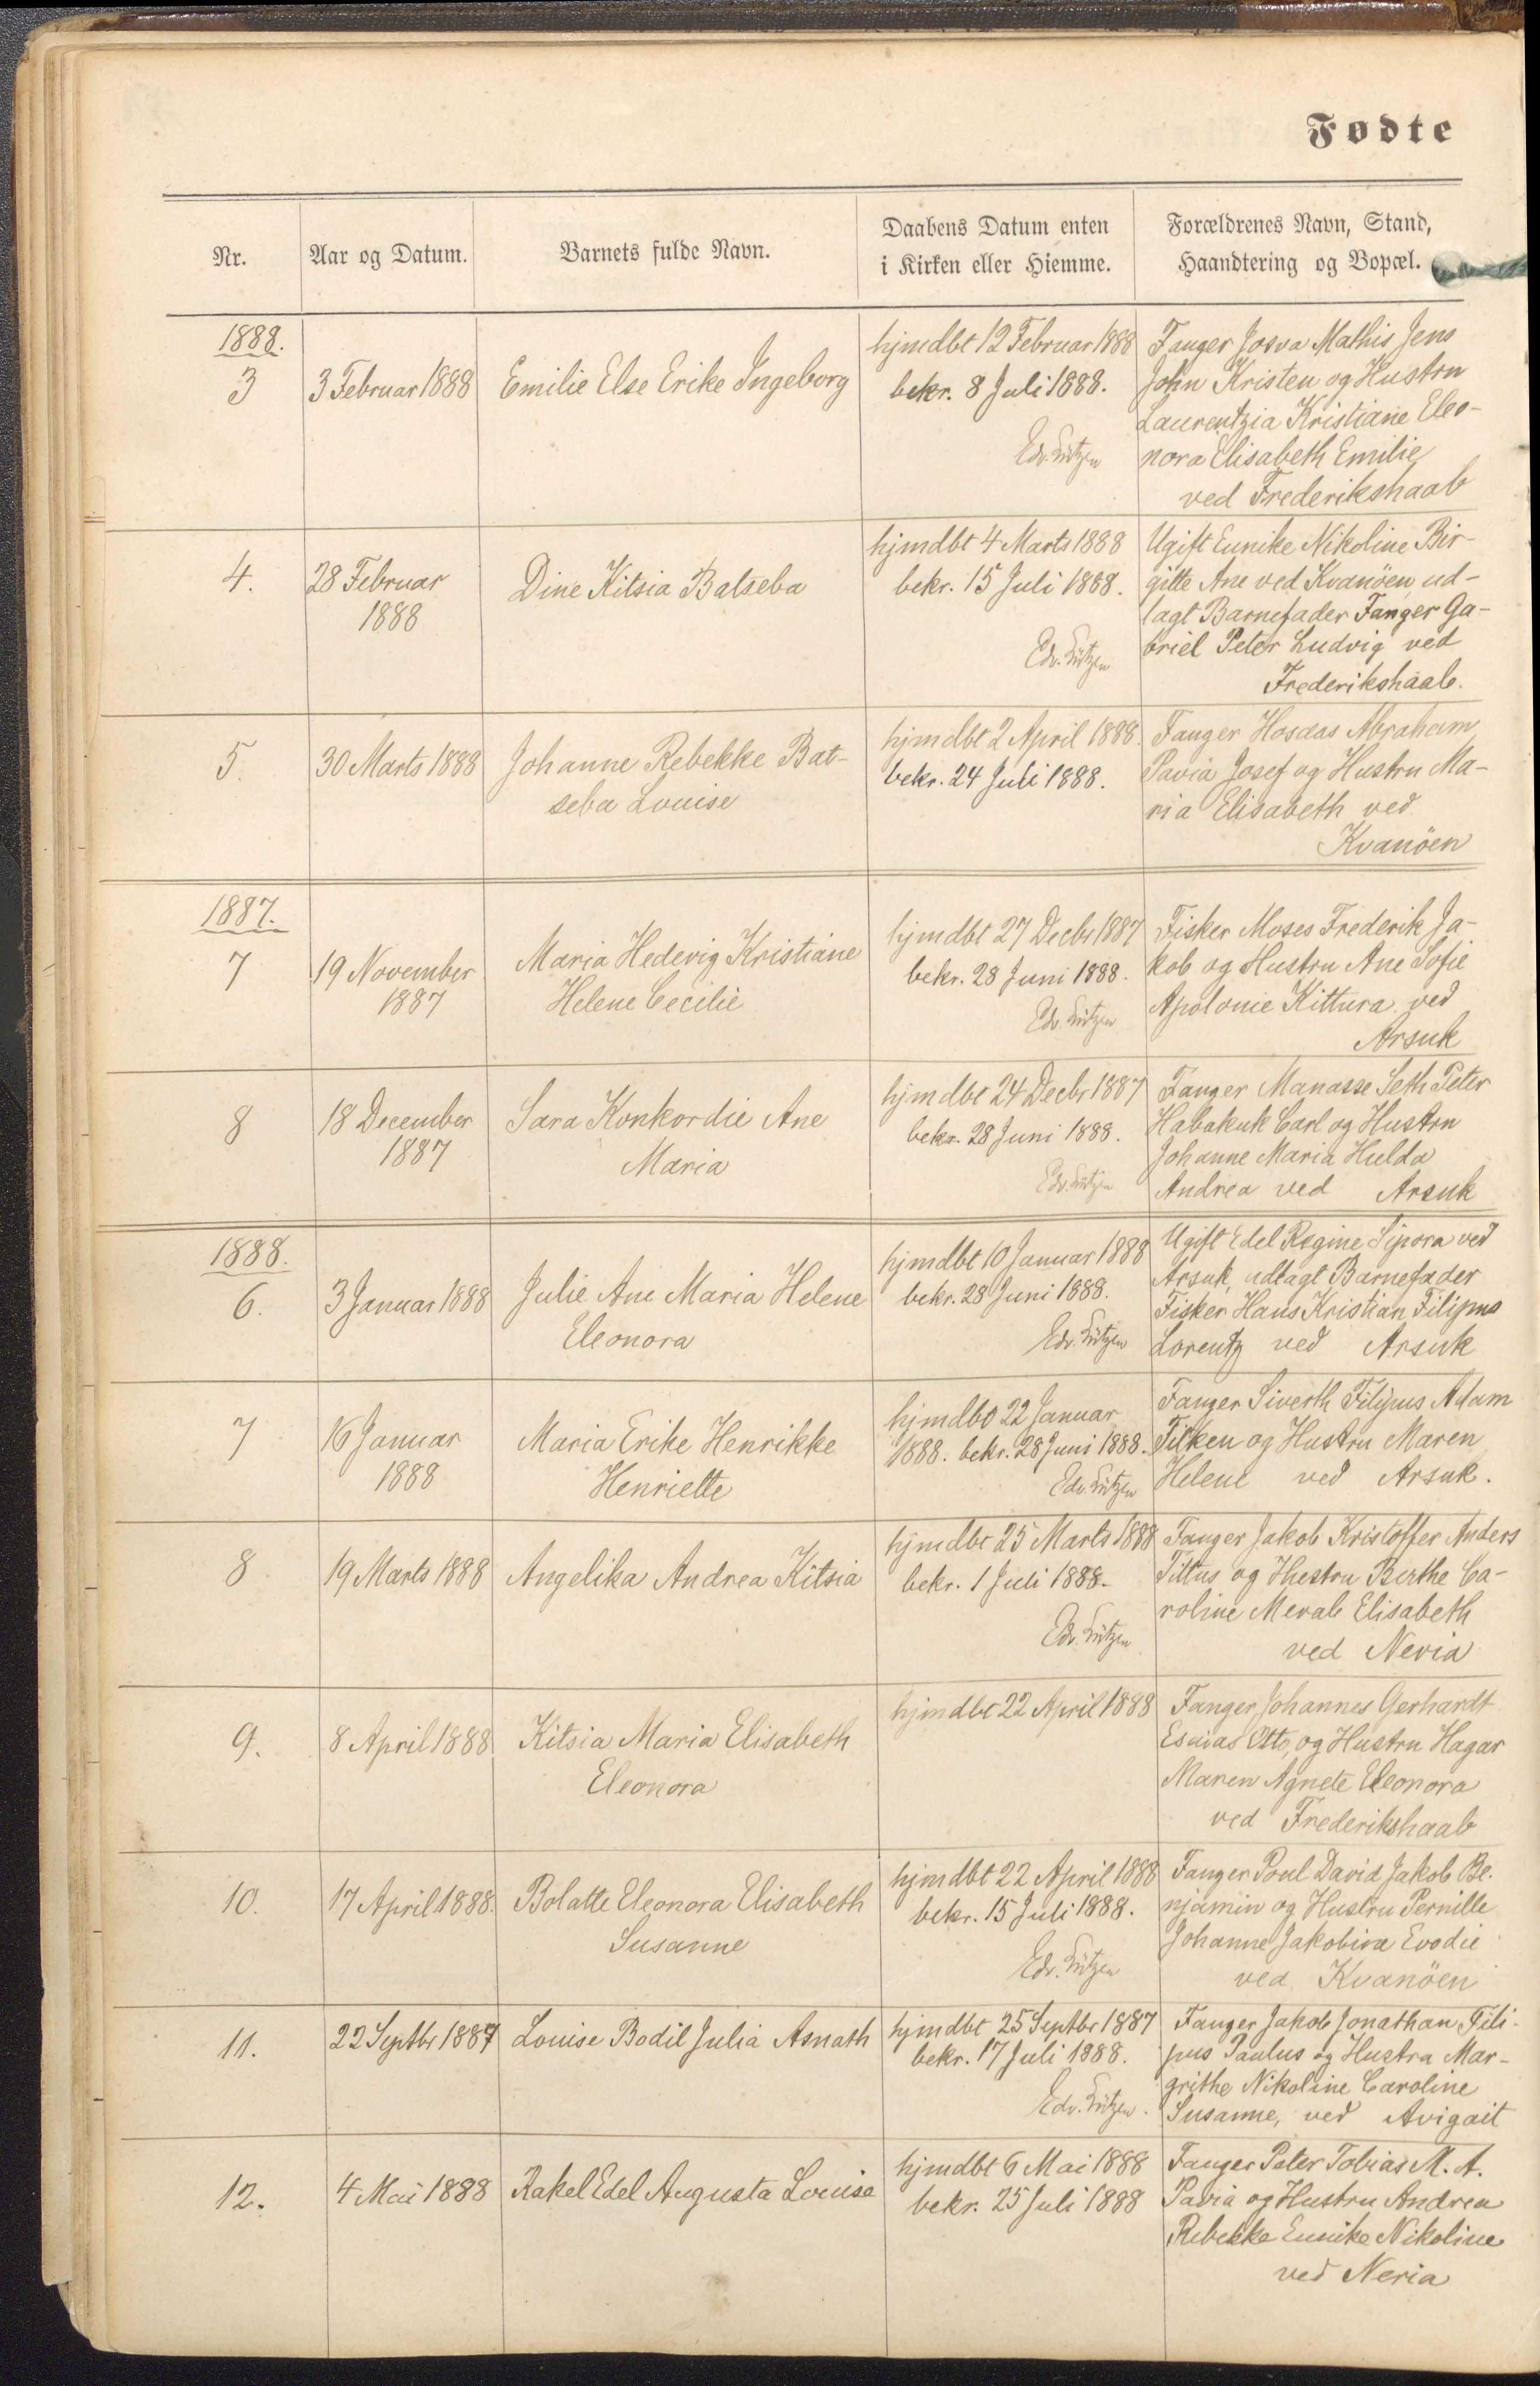 Fødte
Nr.
Aar og Datum.
Barnets fulde Navn.
Daabens Datum enten
i Kirken eller Hiemme.
Forældrenes Navn, Stand,
Haandtering og Bopæl.
1888.
3
3 Februar 1888
Emilie Else Erike Ingeborg
hjmdbt 12 Februar 1888
bekr. 8 Juli 1888.
Edv. Lützen
Fanger Josva Mathis Jens
John Kristen og Hustru
Laurentzia Kristiane Eleo-
nora Elisabeth Emilie
ved Frederikshaab
4.
28 Februar
1888
Dine Kitsia Batseba
hjmdbt 4 Marts 1888
bekr. 15 Juli 1888.
Edv. Lützen
Ugift Eunike Nikoline Bir-
gitte Ane ved Kvanöen, ud-
lagt Barnefader Fanger Ga-
briel Peter Ludvig ved
Frederikshaab.
5.
30 Marts 1888
Johanne Rebekke Bat-
seba Louise
hjmdbt 2 April 1888.
bekr. 24 Juli 1888.
Fanger Hosæas Abraham
Pavia Josef og Hustru Ma-
ria Elisabeth ved
Kvanöen
1887.
7
19 November
1887
Maria Hedevig Kristiane
Helene Cecilie
hjmdbt 27 Decbr 1887
bekr. 28 Juni 1888.
Edv. Lützen
Fisker Moses Frederik Ja-
kob og Hustru Ane Sofie
Apolonie Kittura ved
Arsuk
8
18 December
1887
Sara Konkordie Ane
Maria
hjmdbt 24 Decbr 1887
bekr. 28 Juni 1888.
Edv. Lützen
Fanger Manasse Seth Peter
Habakuk Carl og Hustru
Johanne Maria Hulda
Andrea ved Arsuk
1888.
6.
3 Januar 1888
Julie Ane Maria Helene
Eleonora
hjmdbt 10 Januar 1888
bekr. 28 Juni 1888.
Edv. Lützen
Ugift Edel Regine Sipora ved
Arsuk, udlagt Barnefader
Fisker Hans Kristian Filipus
Lorentz ved Arsuk
7
16 Januar
1888
Maria Erike Henrikke
Henriette
hjmdbt 22 Januar
1888. bekr. 28 Juni 1888.
Edv. Lützen
Fanger Siverth Filipus Adam
Filken og Hustru Maren
Helene ved Arsuk.
8
19 Marts 1888
Angelika Andrea Kitsia
hjmdbt 25 Marts 1888
bekr. 1 Juli 1888.
Edv. Lützen
Fanger Jakob Kristoffer Anders
Tittus og Hustru Berthe Ca-
roline Merab Elisabeth
ved Neria
9.
8 April 1888
Kitsia Maria Elisabeth
Eleonora
hjmdbt 22 April 1888
Fanger Johannes Gerhardt
Esaias Otto, og Hustru Hagar
Maren Agnete Eleonora
ved Frederikshaab
10.
17 April 1888.
Bolatte Eleonora Elisabeth
Susanne
hjmdbt 22 April 1888
bekr. 15 Juli 1888.
Edv. Lützen
Fanger Poul David Jakob Be-
njamin og Hustru Pernille
Johanne Jakobine Evodie
ved Kvanöen
11.
22 Septbr 1887
Louise Bodil Julia Asnath
hjmdbt 25 Septbr 1887
bekr. 17 Juli 1888.
Edv. Lützen.
Fanger Jakob Jonathan Fili-
pus Paulus og Hustru Mar-
grithe Nikoline Caroline
Susanne, ved Avigait
12.
4 Mai 1888
Rakel Edel Augusta Louise
hjmdbt 6 Mai 1888
bekr. 25 Juli 1888
Fanger Peter Tobias M. A.
Pavia og Hustru Andrea
Rebekke Eunike Nikoline
ved Neria